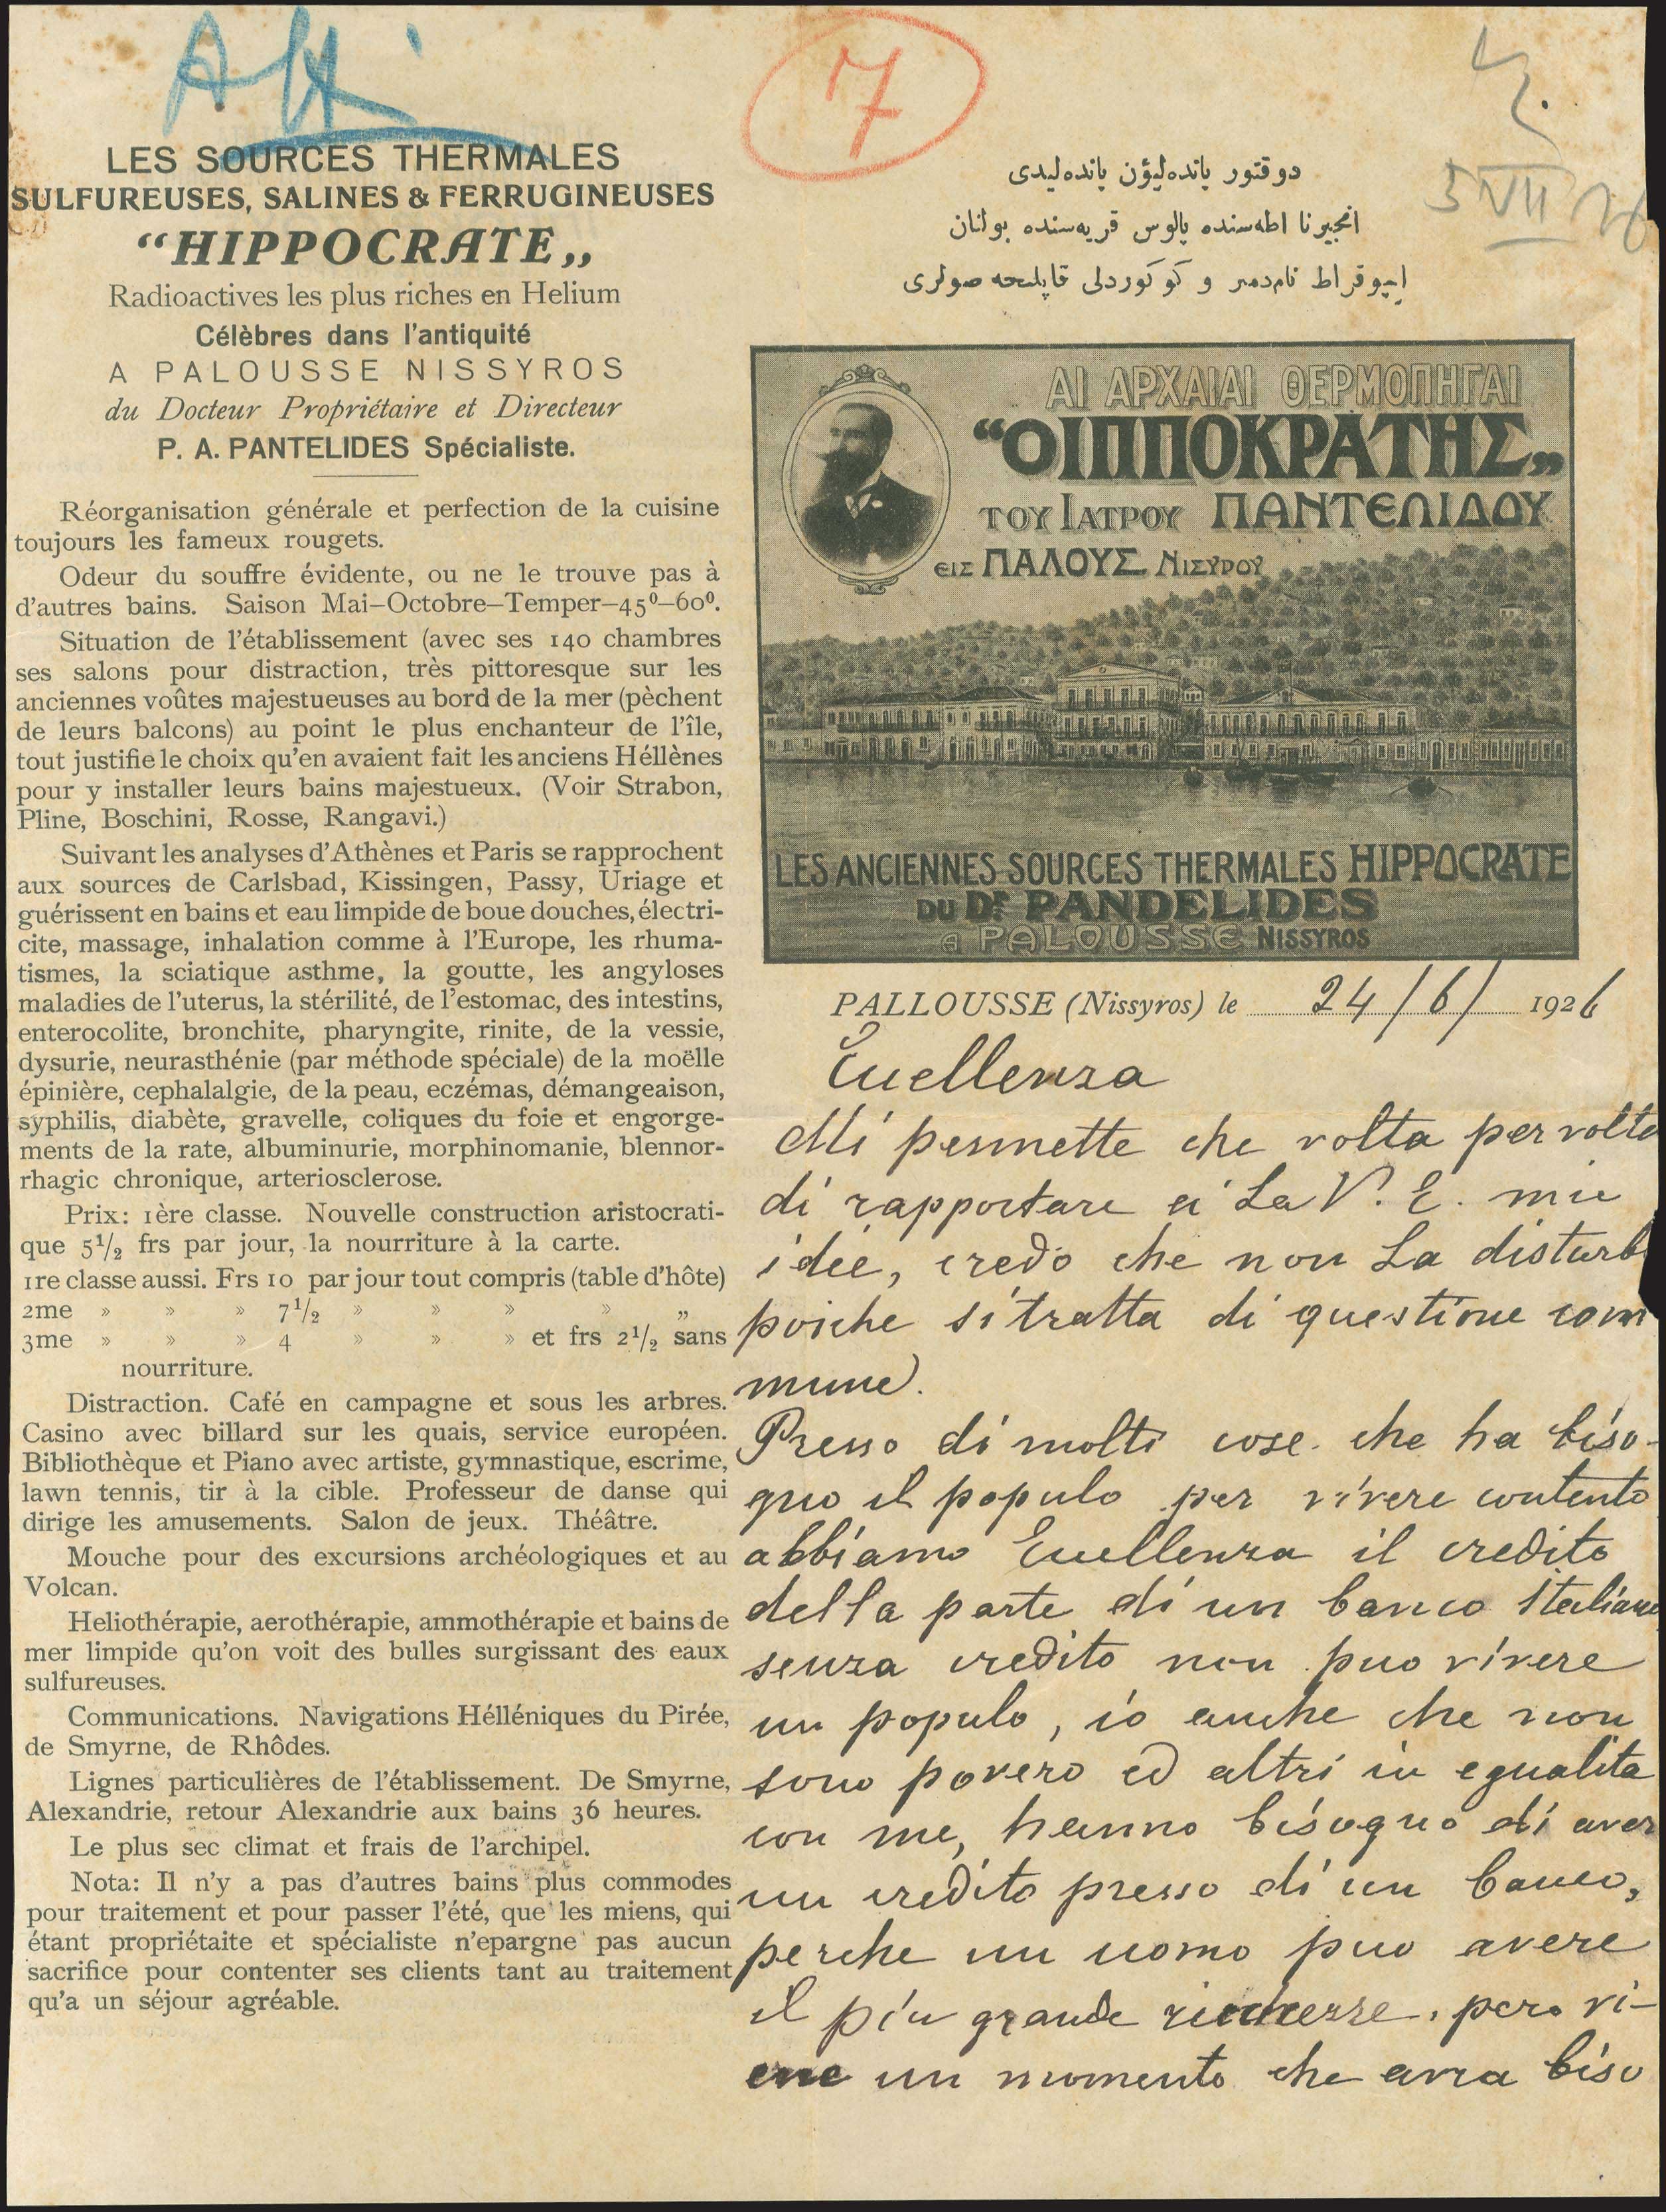 Atti
7
5 VII 26
LES SOURCES THERMALES
SULFUREUSES, SALINES & FERRUGINEUSES
“HIPPOCRATE„
Radioactives les plus riches en Helium
Célèbres dans l'antiquité
A PALOUSSE NISSYROS
du Docteur Propriétaire et Directeur
P. A. PANTELIDES Spécialiste.
Réorganisation générale et perfection de la cuisine
toujours les fameux rougets.
Odeur du souffre évidente, ou ne le trouve pas à
d'autres bains. Saison Mai–Octobre–Temper–45⁰–60⁰.
Situation de l'établissement (avec ses 140 chambres
ses salons pour distraction, très pittoresque sur les
anciennes voûtes majestueuses au bord de la mer (pèchent
de leurs balcons) au point le plus enchanteur de l'île,
tout justifie le choix qu'en avaient fait les anciens Héllènes
pour y installer leurs bains majestueux. (Voir Strabon,
Pline, Boschini, Rosse, Rangavi.)
Suivant les analyses d'Athènes et Paris se rapprochent
aux sources de Carlsbad, Kissingen, Passy, Uriage et
guérissent en bains et eau limpide de boue douches, électri-
cite, massage, inhalation comme à l'Europe, les rhuma-
tismes, la sciatique asthme, la goutte, les angyloses
maladies de l'uterus, la stérilité, de l'estomac, des intestins,
enterocolite, bronchite, pharyngite, rinite, de la vessie,
dysurie, neurasthénie (par méthode spéciale) de la moëlle
épinière, cephalalgie, de la peau, eczémas, démangeaison,
syphilis, diabète, gravelle, coliques du foie et engorge-
ments de la rate, albuminurie, morphinomanie, blennor-
rhagic chronique, arteriosclerose.
Prix: 1ère classe. Nouvelle construction aristocrati-
que 5¹/₂ frs par jour, la nourriture à la carte.
1re classe aussi. Frs 10 par jour tout compris (table d'hôte)
2me » » » 7¹/₂ » » » » „
3me » » » 4 » » » et frs 2¹/₂ sans
nourriture.
Distraction. Café en campagne et sous les arbres.
Casino avec billard sur les quais, service européen.
Bibliothèque et Piano avec artiste, gymnastique, escrime,
lawn tennis, tir à la cible. Professeur de danse qui
dirige les amusements. Salon de jeux. Théâtre.
Mouche pour des excursions archéologiques et au
Volcan.
Heliothérapie, aerothérapie, ammothérapie et bains de
mer limpide qu'on voit des bulles surgissant des eaux
sulfureuses.
Communications. Navigations Hélléniques du Pirée,
de Smyrne, de Rhôdes.
Lignes particulières de l'établissement. De Smyrne,
Alexandrie, retour Alexandrie aux bains 36 heures.
Le plus sec climat et frais de l'archipel.
Nota: Il n'y a pas d'autres bains plus commodes
pour traitement et pour passer l'été, que les miens, qui
étant propriétaite et spécialiste n'epargne pas aucun
sacrifice pour contenter ses clients tant au traitement
qu'a un séjour agréable.
دوقتور پانده‌لیؤن پانده‌لیدی
انجیرنا اطه‌سنده پالوس قریه‌سنده بولنان
ایپوقراط نام‌دمر و کوکوردلی قاپلیجه صولری
ΑΙ ΑΡΧΑΙΑΙ ΘΕΡΜΟΠΗΓΑΙ
“Ο ΙΠΠΟΚΡΑΤΗΣ„
ΤΟΥ ΙΑΤΡΟΥ ΠΑΝΤΕΛΙΔΟΥ
ΕΙΣ ΠΑΛΟΥΣ ΝΙΣΥΡΟΥ
LES ANCIENNES SOURCES THERMALES HIPPOCRATE
DU Dr. PANDELIDES
A PALOUSSE NISSYROS
PALLOUSSE (Nissyros) le 24/6/ 1926
Eccellenza
Mi permette che volta per volta
di rapportare a La V. E. mie
idee, credo che non La disturb
poiche si tratta di questione com
mune.
Presso di molti cose che ha biso-
gno il populo per vivere contento
abbiamo Eccellenza il credito
della parte di un banco Italiano
senza credito non puo vivere
un populo, io anche che non
sono povero ed altri in egualita
con me, hanno bisogno di aver
un credito presso di un banco,
perche un uomo puo avere
il piu grande richezze, pero vi-
ene un momento che avra biso